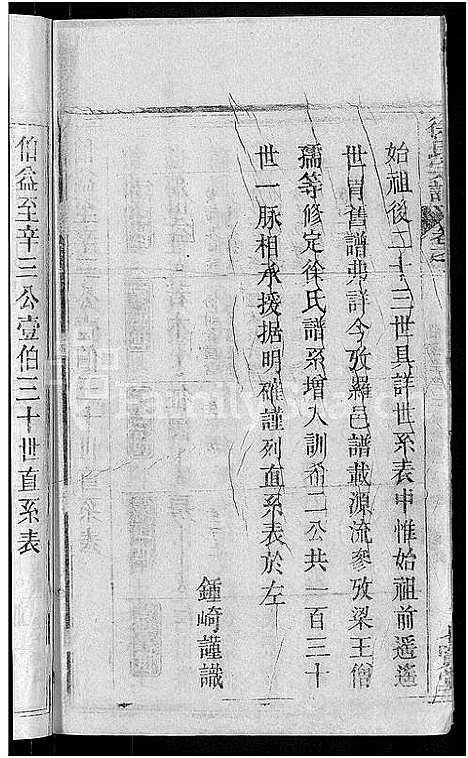 始祖後二十三世具詳世系表中惟始祖前遥遥
世冑舊譜弗詳今攷羅邑譜載源流參攷梁王僧
孺等修定徐氏譜系增入訓畨二公共一百三十
世一脉相承援据明確謹列直系表於左
鍾崎謹識
伯益至辛三公壹伯三十世直系表